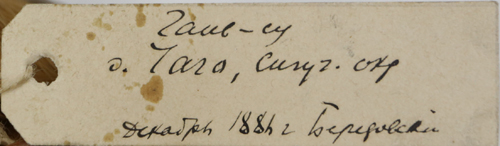 Гане-су
д. Чаго, Сигуг. окр
Декабрь 1886 г Березовский